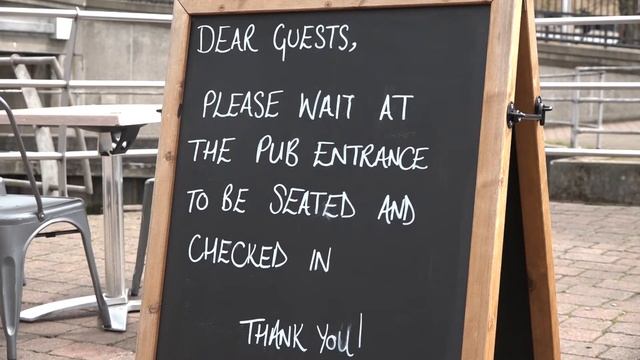 DEAR GUESTS,
PLEASE WAIT AT
THE PUB ENTRANCE
TO BE SEATED AND
CHECKED IN
THANK YOU!